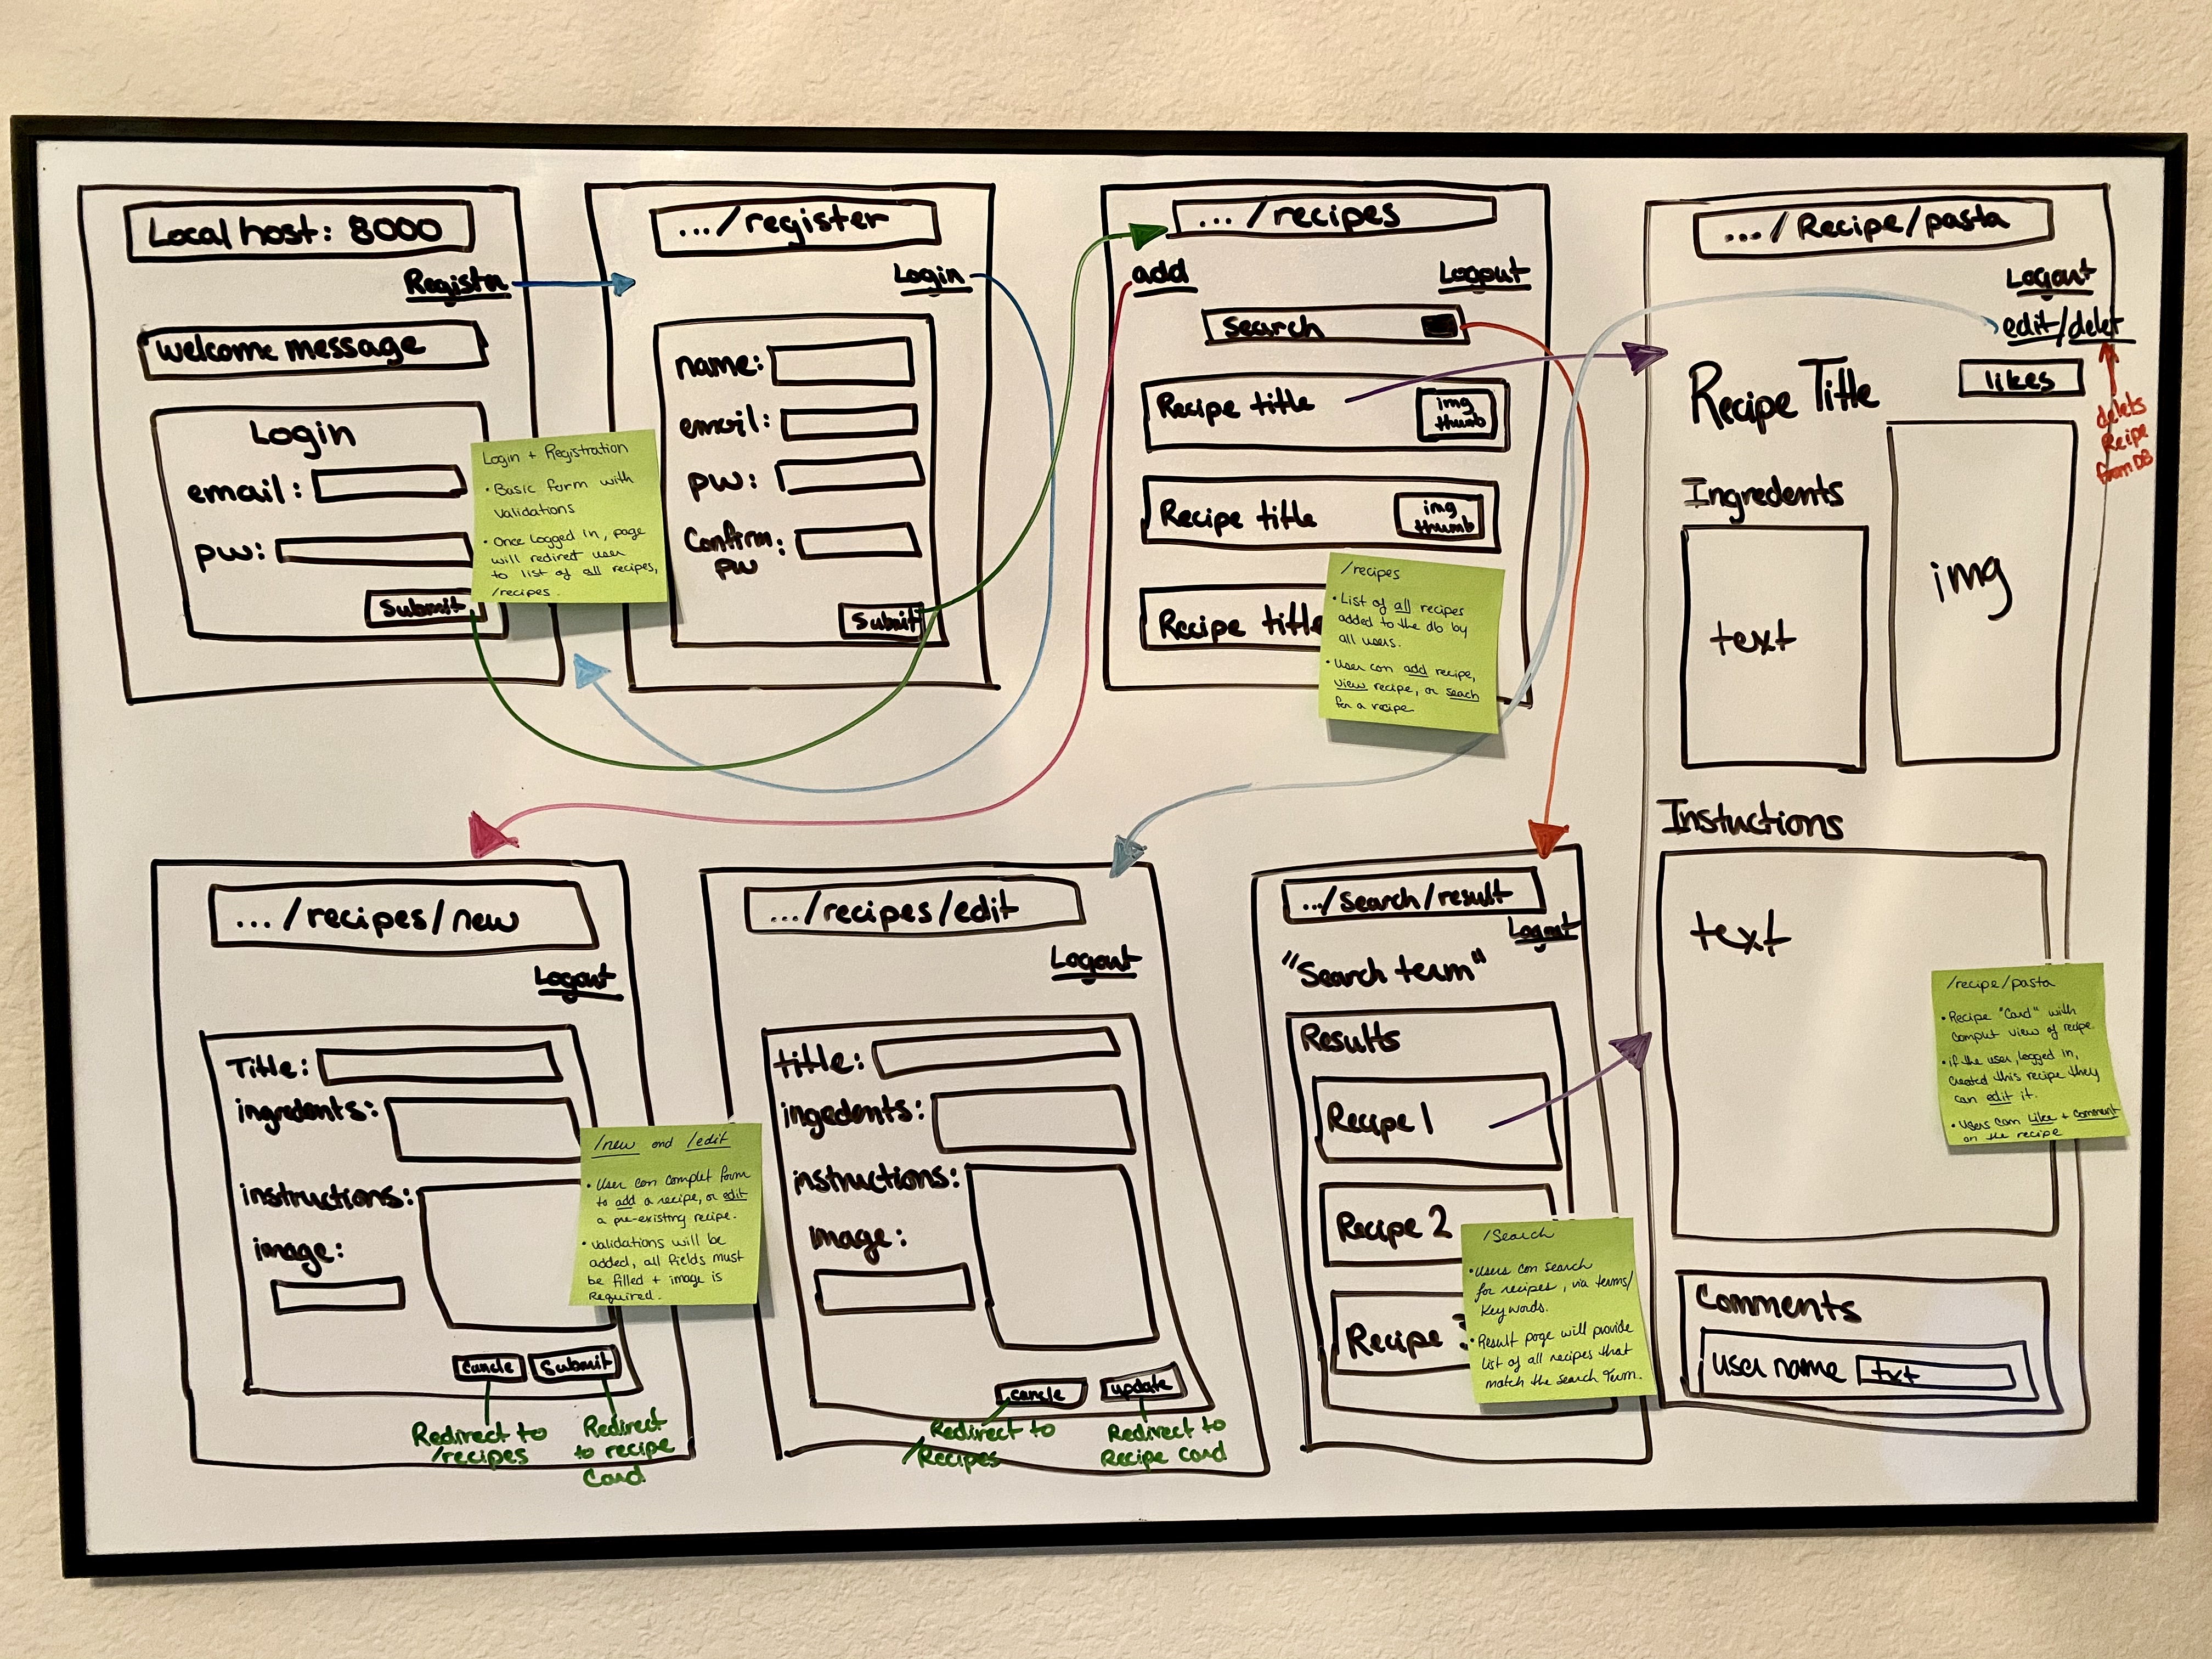 Local host: 8000
Registr
welcome message
Login
email:
pw:
Submit
Login + Registration
• Basic form with
validations
• Once logged in, page
will redirect user
to list of all recipes,
/recipes.
.../register
Login
name:
email:
pw:
Confirm:
pw
Submit
... /recipes
add
Logout
search
Recipe title
img
thumb
Recipe title
img
thumb
Recipe title
/recipes
• List of all recipes
added to the db by
all users.
• User can add recipe,
view recipe, or seach
for a recipe.
.../Recipe/pasta
Logout
edit/delet
likes
delets
Recipe
from DB
Recipe Title
Ingredents
text
img
Instuctions
text
/recipe/pasta
• Recipe "Card" with
complet view of recipe.
• if the user, logged in,
created this recipe they
can edit it.
• Users can Like + comment
on the recipe
Comments
user name
txt
... /recipes/new
Logout
Title:
ingredents:
instructions:
image:
cancle
Submit
Redirect to
/recipes
Redirect
to recipe
Card
/new and /edit
• User can complet form
to add a recipe, or edit
a pre-existing recipe.
• validations will be
added, all fields must
be filled + image is
Required.
.../recipes/edit
Logout
title:
ingedents:
instructions:
Image:
cancle
update
Redirect to
/Recipes
Redirect to
Recipe card
../search/result
Logout
"Search term"
Results
Recipe 1
Recipe 2
Recipe 3
/Search
• Users can search
for recipes, via terms/
Key words.
• Result page will provide
list of all recipes that
match the search term.